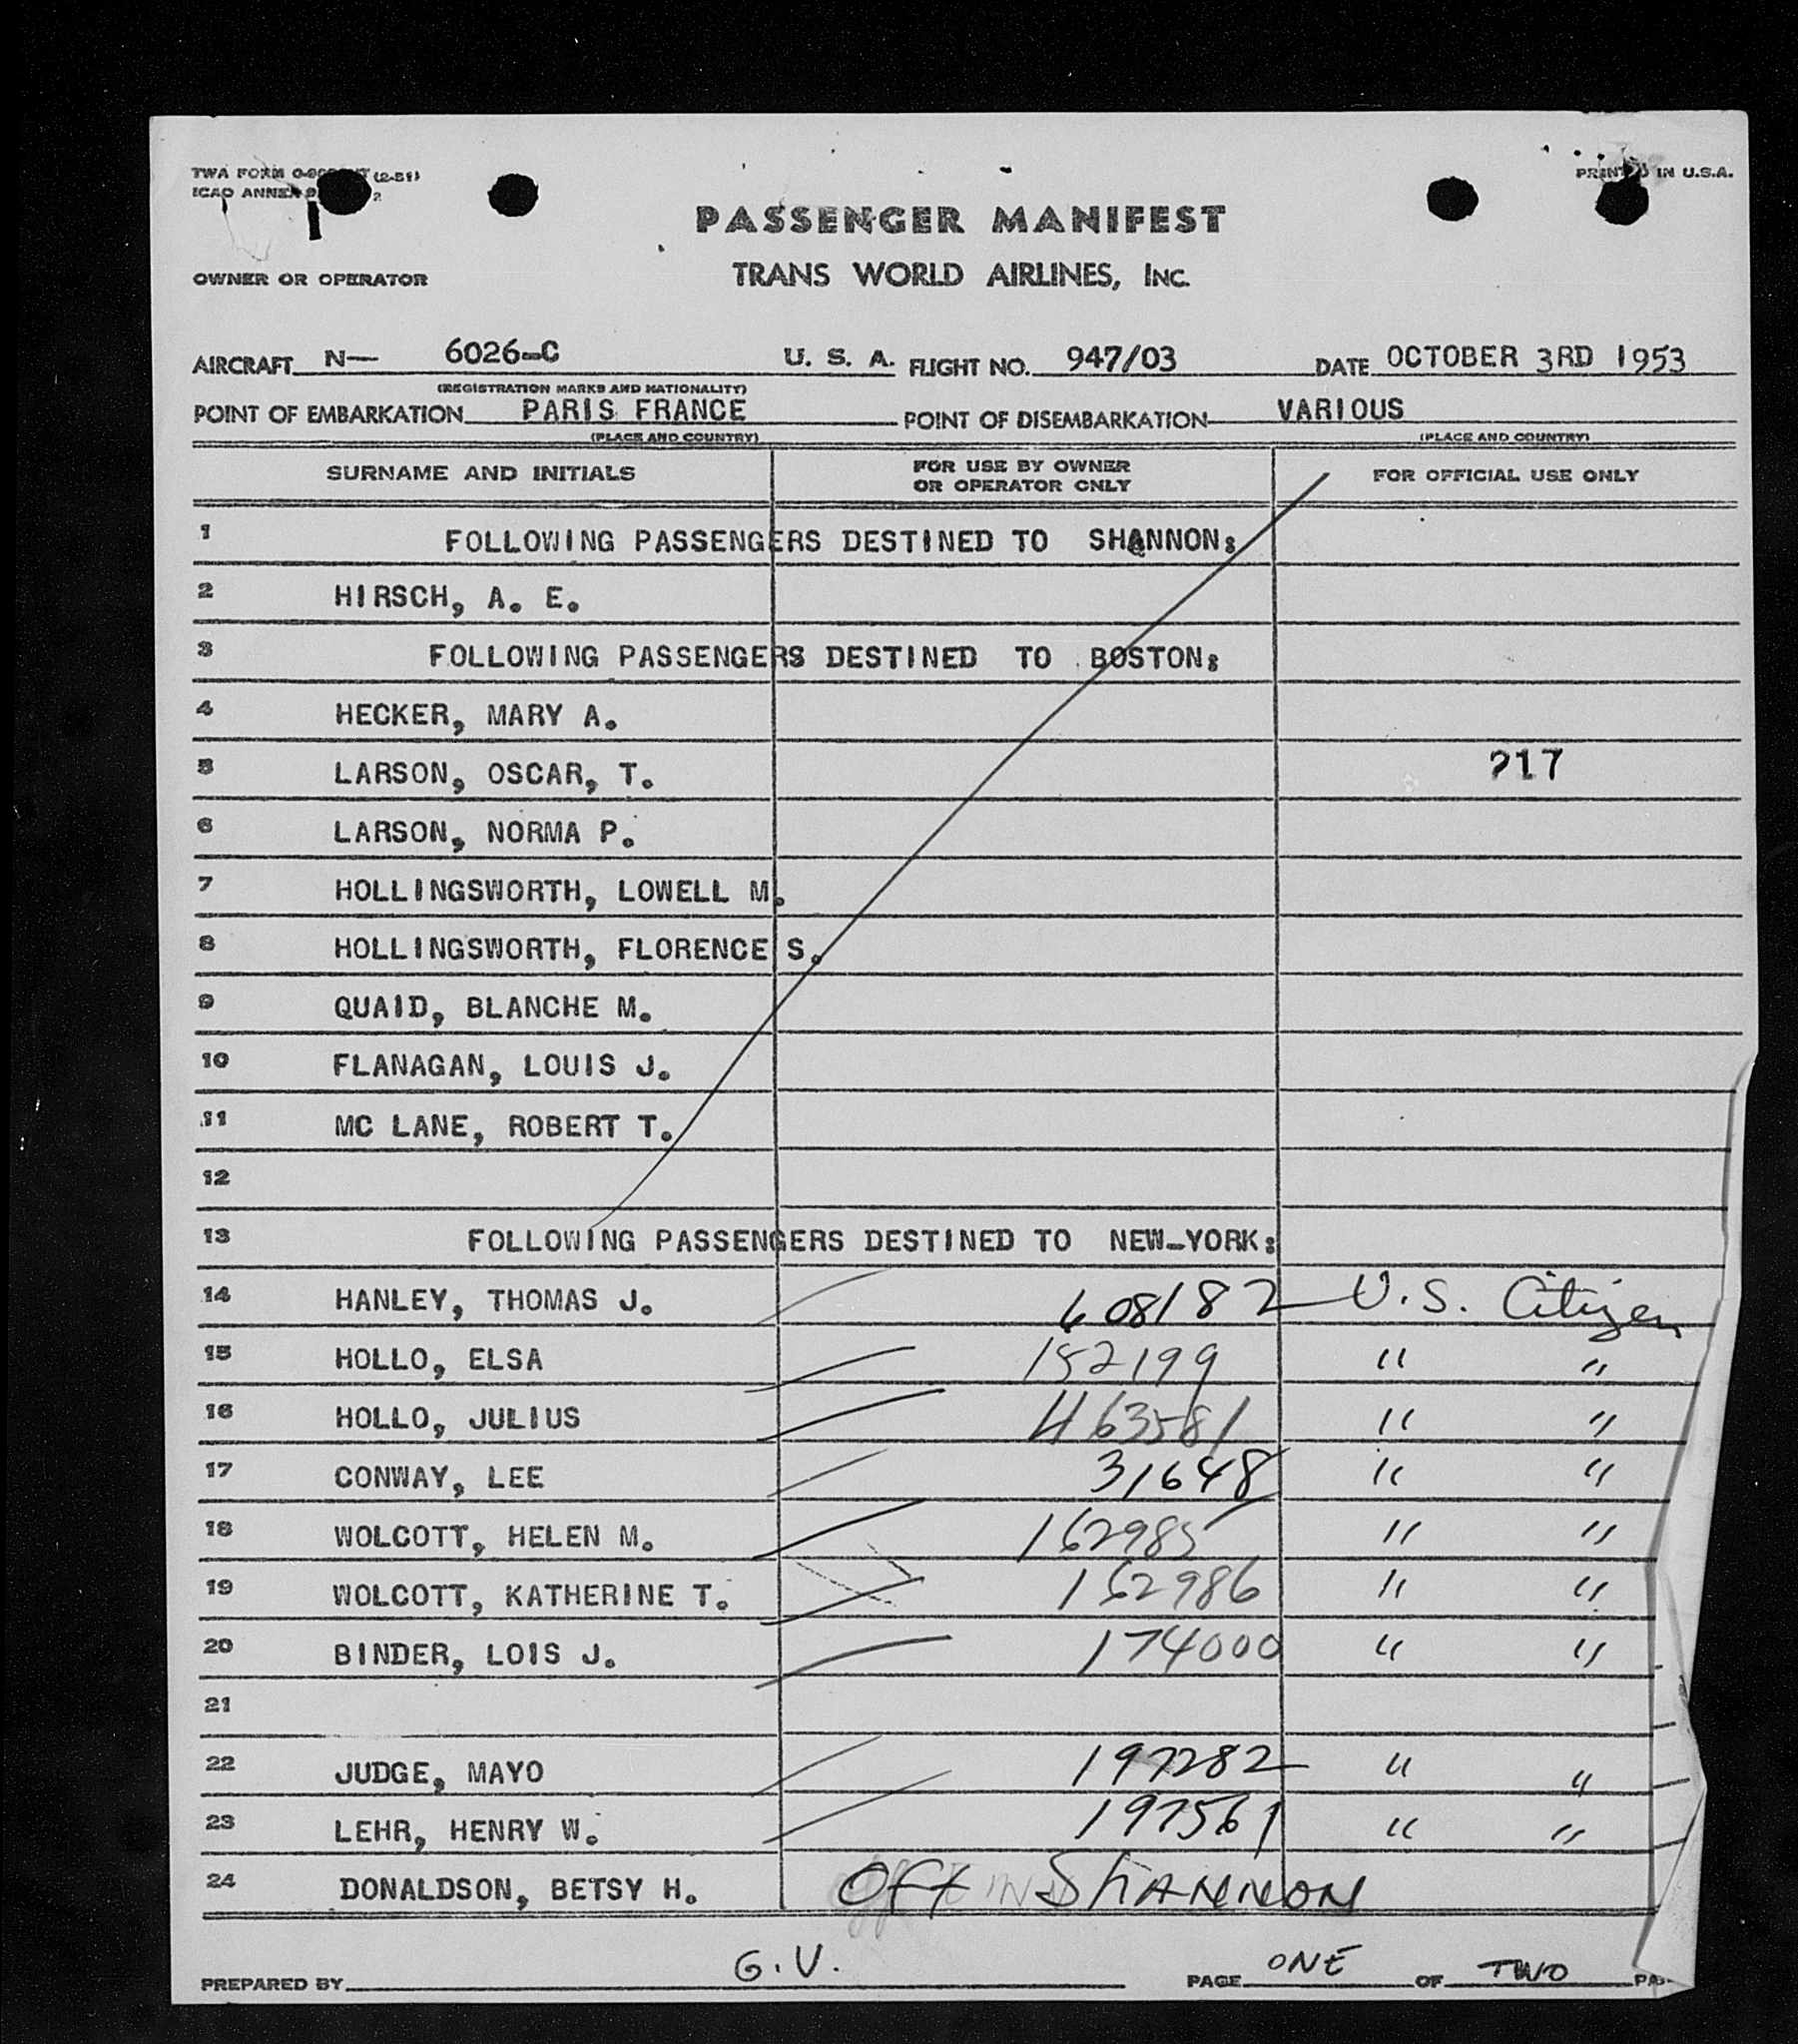 TWA FORM (2-51)
ICAO ANNEX 2
PRINTED IN U.S.A.
PASSENGER MANIFEST
OWNER OR OPERATOR TRANS WORLD AIRLINES, INC.
AIRCRAFT N— 6026-C U. S. A. FLIGHT NO. 947/03 DATE OCTOBER 3RD 1953
(REGISTRATION MARKS AND NATIONALITY)
POINT OF EMBARKATION PARIS FRANCE POINT OF DISEMBARKATION VARIOUS
(PLACE AND COUNTRY) (PLACE AND COUNTRY)
SURNAME AND INITIALS FOR USE BY OWNER OR OPERATOR ONLY FOR OFFICIAL USE ONLY
1 FOLLOWING PASSENGERS DESTINED TO SHANNON:
2 HIRSCH, A. E.
3 FOLLOWING PASSENGERS DESTINED TO BOSTON:
4 HECKER, MARY A.
5 LARSON, OSCAR, T. 217
6 LARSON, NORMA P.
7 HOLLINGSWORTH, LOWELL M.
8 HOLLINGSWORTH, FLORENCE S.
9 QUAID, BLANCHE M.
10 FLANAGAN, LOUIS J.
11 MC LANE, ROBERT T.
12
13 FOLLOWING PASSENGERS DESTINED TO NEW-YORK:
14 HANLEY, THOMAS J. 608182 U.S. Citizen
15 HOLLO, ELSA 152199 " "
16 HOLLO, JULIUS 463581 " "
17 CONWAY, LEE 31648 " "
18 WOLCOTT, HELEN M. 162985 " "
19 WOLCOTT, KATHERINE T. 162986 " "
20 BINDER, LOIS J. 174000 " "
21
22 JUDGE, MAYO 197282 " "
23 LEHR, HENRY W. 197561 " "
24 DONALDSON, BETSY H. OFF IN SHANNON
PREPARED BY G.V. PAGE ONE OF TWO